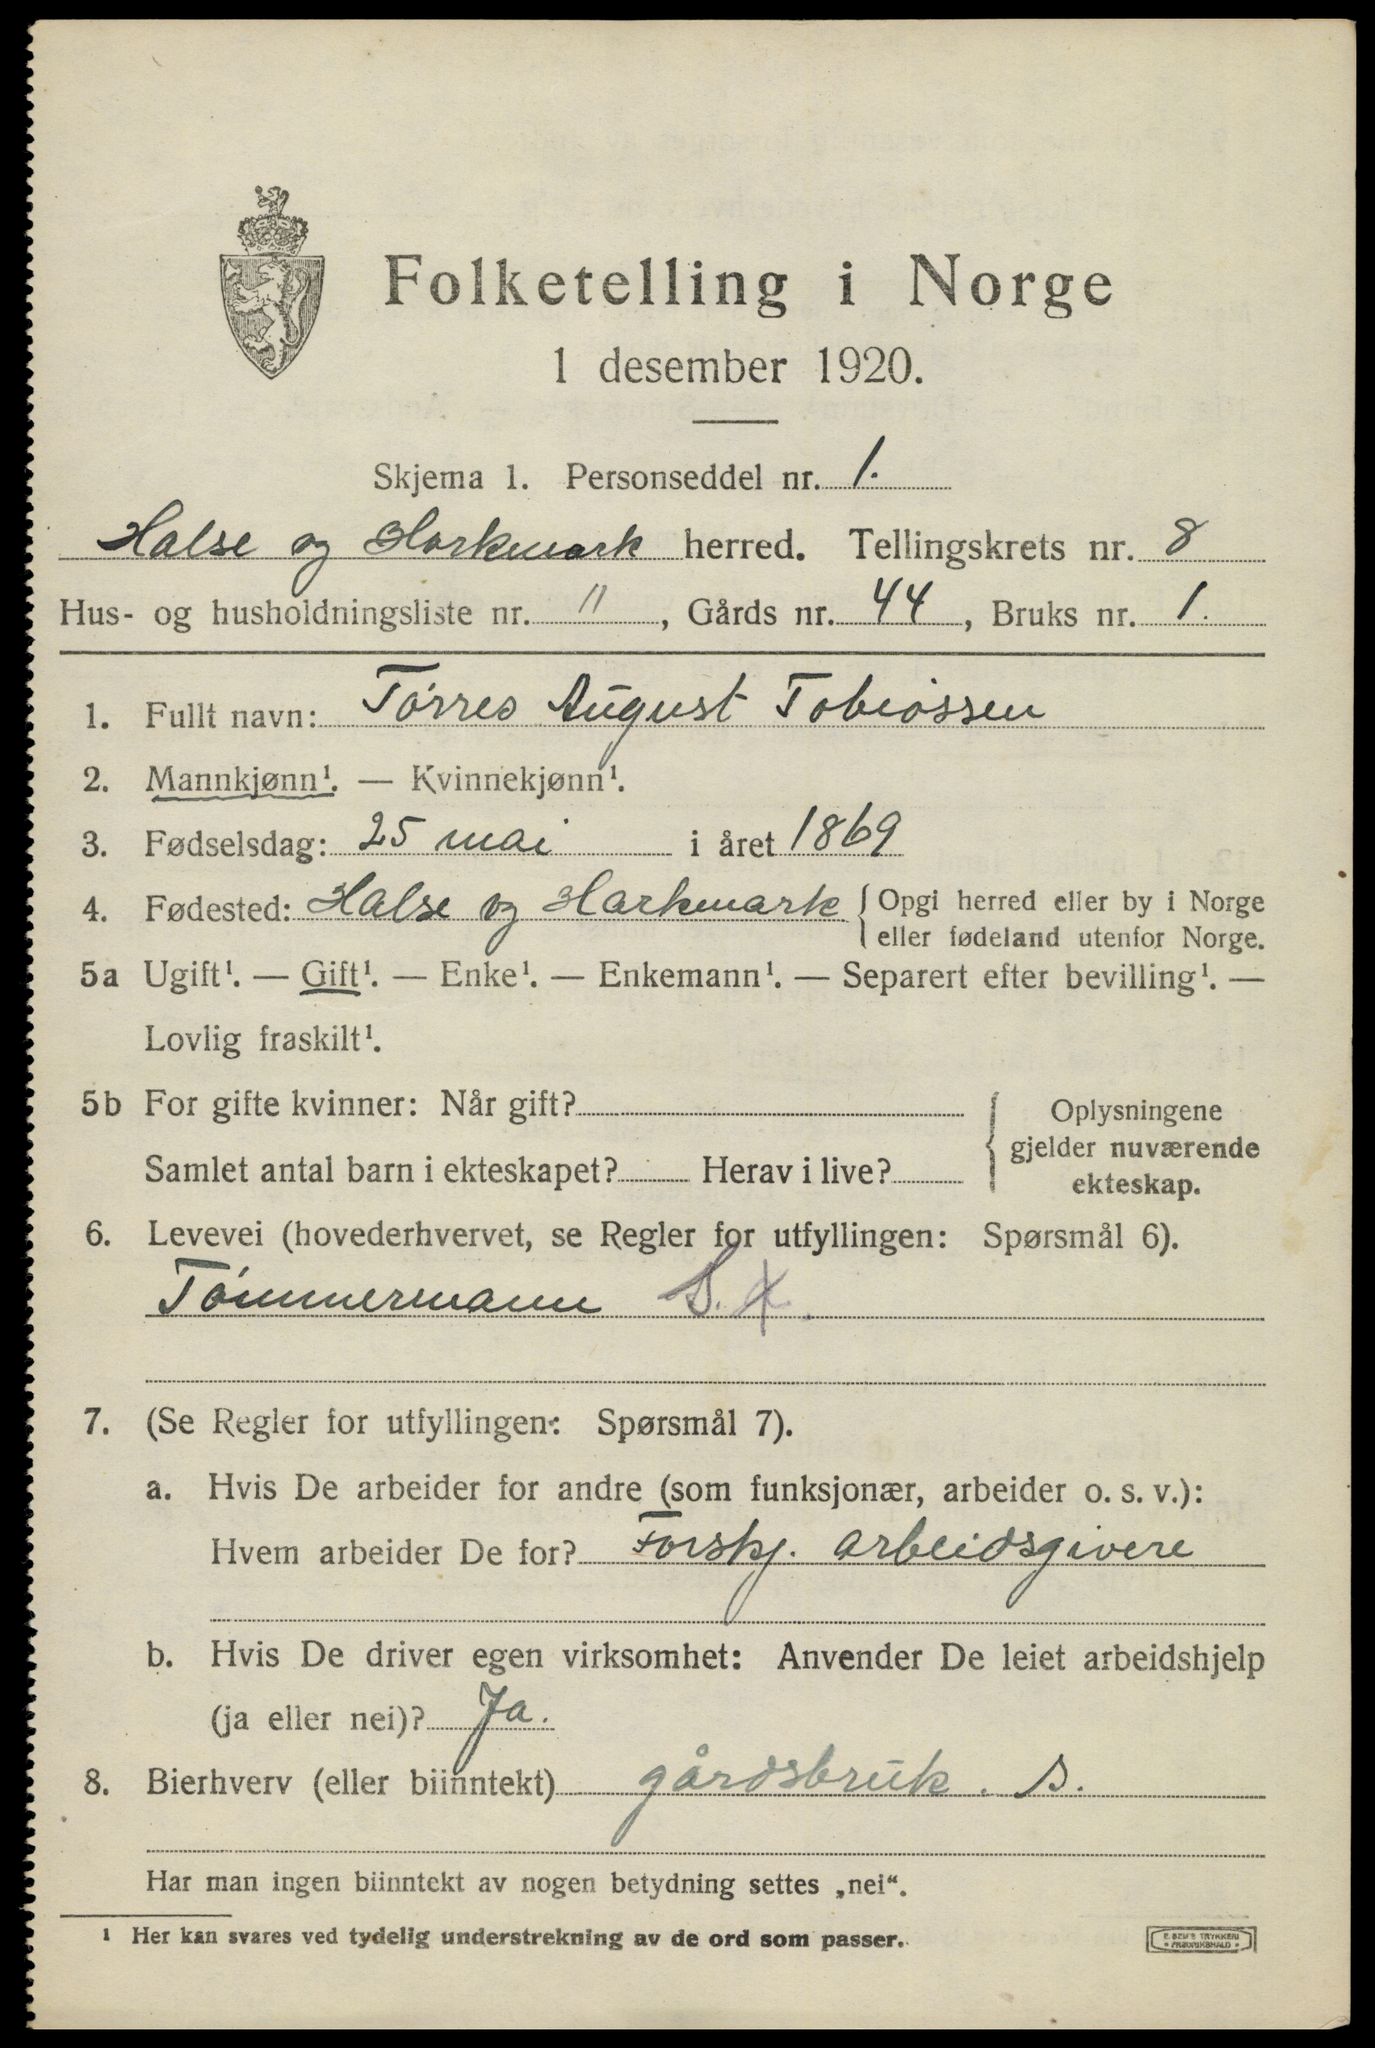 Folketelling i Norge
1 desember 1920.
Skjema 1. Personseddel nr. 1.
Halse og Harkmark herred. Tellingskrets nr. 8
Hus- og husholdningsliste nr. 11, Gårds nr. 44, Bruks nr. 1.
1. Fullt navn: Tórres August Tobiassen
2. Mannkjønn¹. — Kvinnekjønn¹.
3. Fødselsdag: 25 mai i året 1869
4. Fødested: Halse og Harkmark { Opgi herred eller by i Norge
eller fødeland utenfor Norge.
5a Ugift¹. — Gift¹. — Enke¹. — Enkemann¹. — Separert efter bevilling¹. —
Lovlig fraskilt¹.
5b For gifte kvinner: Når gift?
Samlet antal barn i ekteskapet? Herav i live?
{ Oplysningene
gjelder nuværende
ekteskap.
6. Levevei (hovederhvervet, se Regler for utfyllingen: Spørsmål 6).
Tómmermann S. X.
7. (Se Regler for utfyllingen: Spørsmål 7).
a. Hvis De arbeider for andre (som funksjonær, arbeider o. s. v.):
Hvem arbeider De for? Forskj. arbeidsgivere
b. Hvis De driver egen virksomhet: Anvender De leiet arbeidshjelp
(ja eller nei)? Ja.
8. Bierhverv (eller biinntekt) gårdsbruk. S.
Har man ingen biinntekt av nogen betydning settes „nei“.
¹ Her kan svares ved tydelig understrekning av de ord som passer.
E. SEM'S TRYKKERI
FREDRIKSHALD